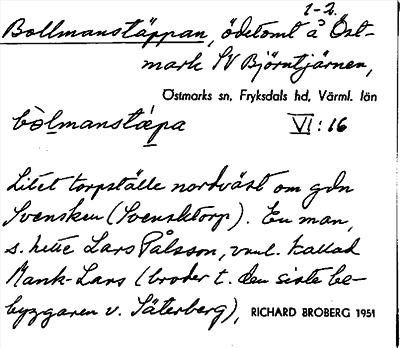 1-2.
Bollmanstäppan, ödetomt å Öst-
mark SV Björntjärnen,
Östmarks sn, Fryksdals hd, Värml. län
bòlmanstæpa VI:16
Litet torpställe nordväst om gdn
Svensken (Svensktorp). En man,
s. hette Lars Pålsson, vanl. kallad
Mank-Lars (broder t. den siste be-
byggaren v. Säterberg),
RICHARD BROBERG 1951